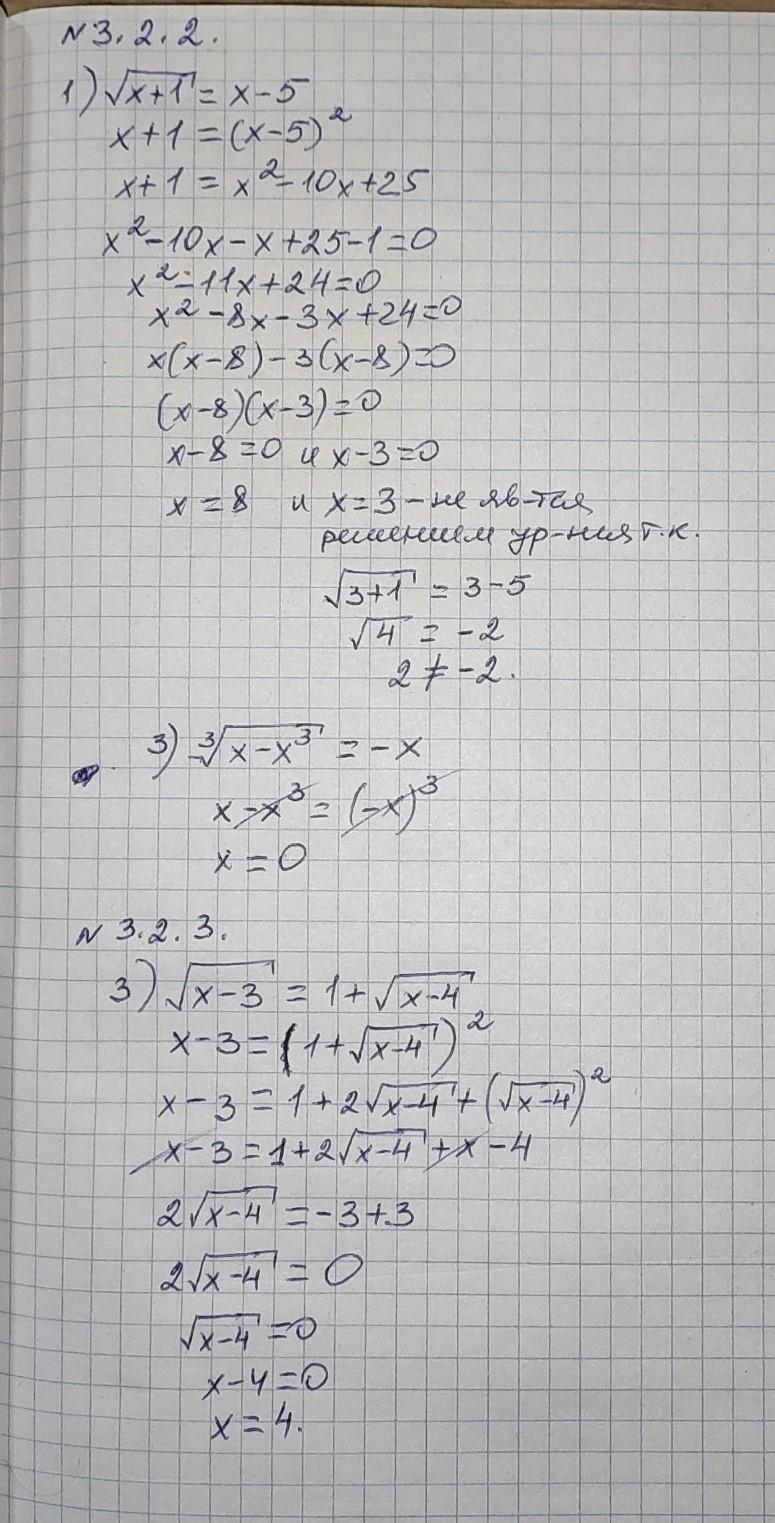 N 3.2.2.
1) √(x+1) = x-5
x+1 = (x-5)²
x+1 = x²-10x+25
x²-10x-x+25-1=0
x²-11x+24=0
x²-8x-3x+24=0
x(x-8)-3(x-8)=0
(x-8)(x-3)=0
x-8=0 и x-3=0
x=8 и x=3-не яв-тся
решением ур-ния т.к.
√(3+1) = 3-5
√4 = -2
2≠-2.
3) ∛(x-x³) = -x
x-x³ = (-x)³
x=0
N 3.2.3.
3) √(x-3) = 1+√(x-4)
x-3=(1+√(x-4))²
x-3=1+2√(x-4)+(√(x-4))²
x-3=1+2√(x-4)+x-4
2√(x-4) = -3+3
2√(x-4) = 0
√(x-4) =0
x-4=0
x=4.